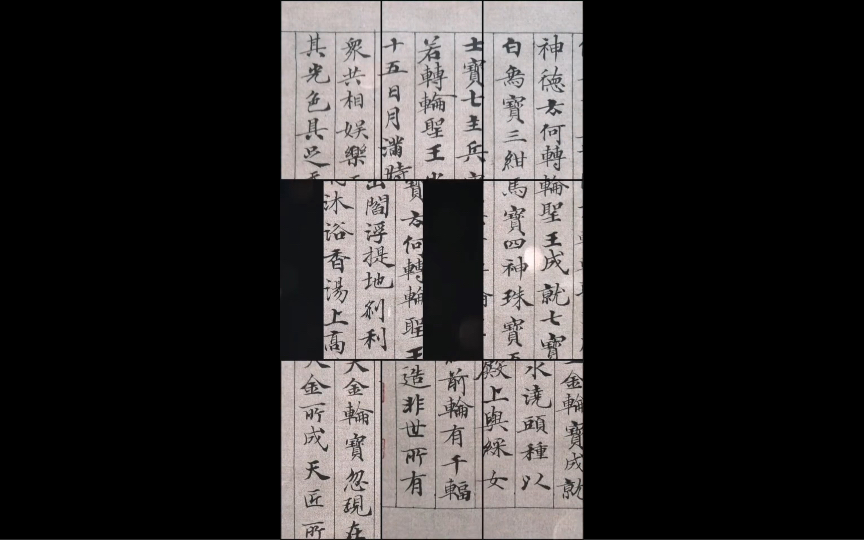 神德云何轉輪聖王成就七寶
白象寶三紺馬寶四神珠寶
士寶七主兵
若轉輪聖王出
十五日月滿時
眾共相娛樂
其光色具足
寶云何轉輪聖王
出閻浮提地剎利
沐浴香湯上高
金輪寶成就
水澆頭種以
殿上與綵女
前輪有千輻
造非世所有
天金輪寶忽現在
天金所成天匠所